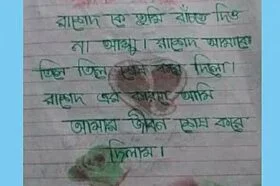 রাশেদ কে তুমি বাঁচতে দিও
না আম্মু। রাশেদ আমারে
তিলে তিলে শেষ করে দিলো।
রাশেদ এর কারণে আমি
আমার জীবন শেষ করে
দিলাম।